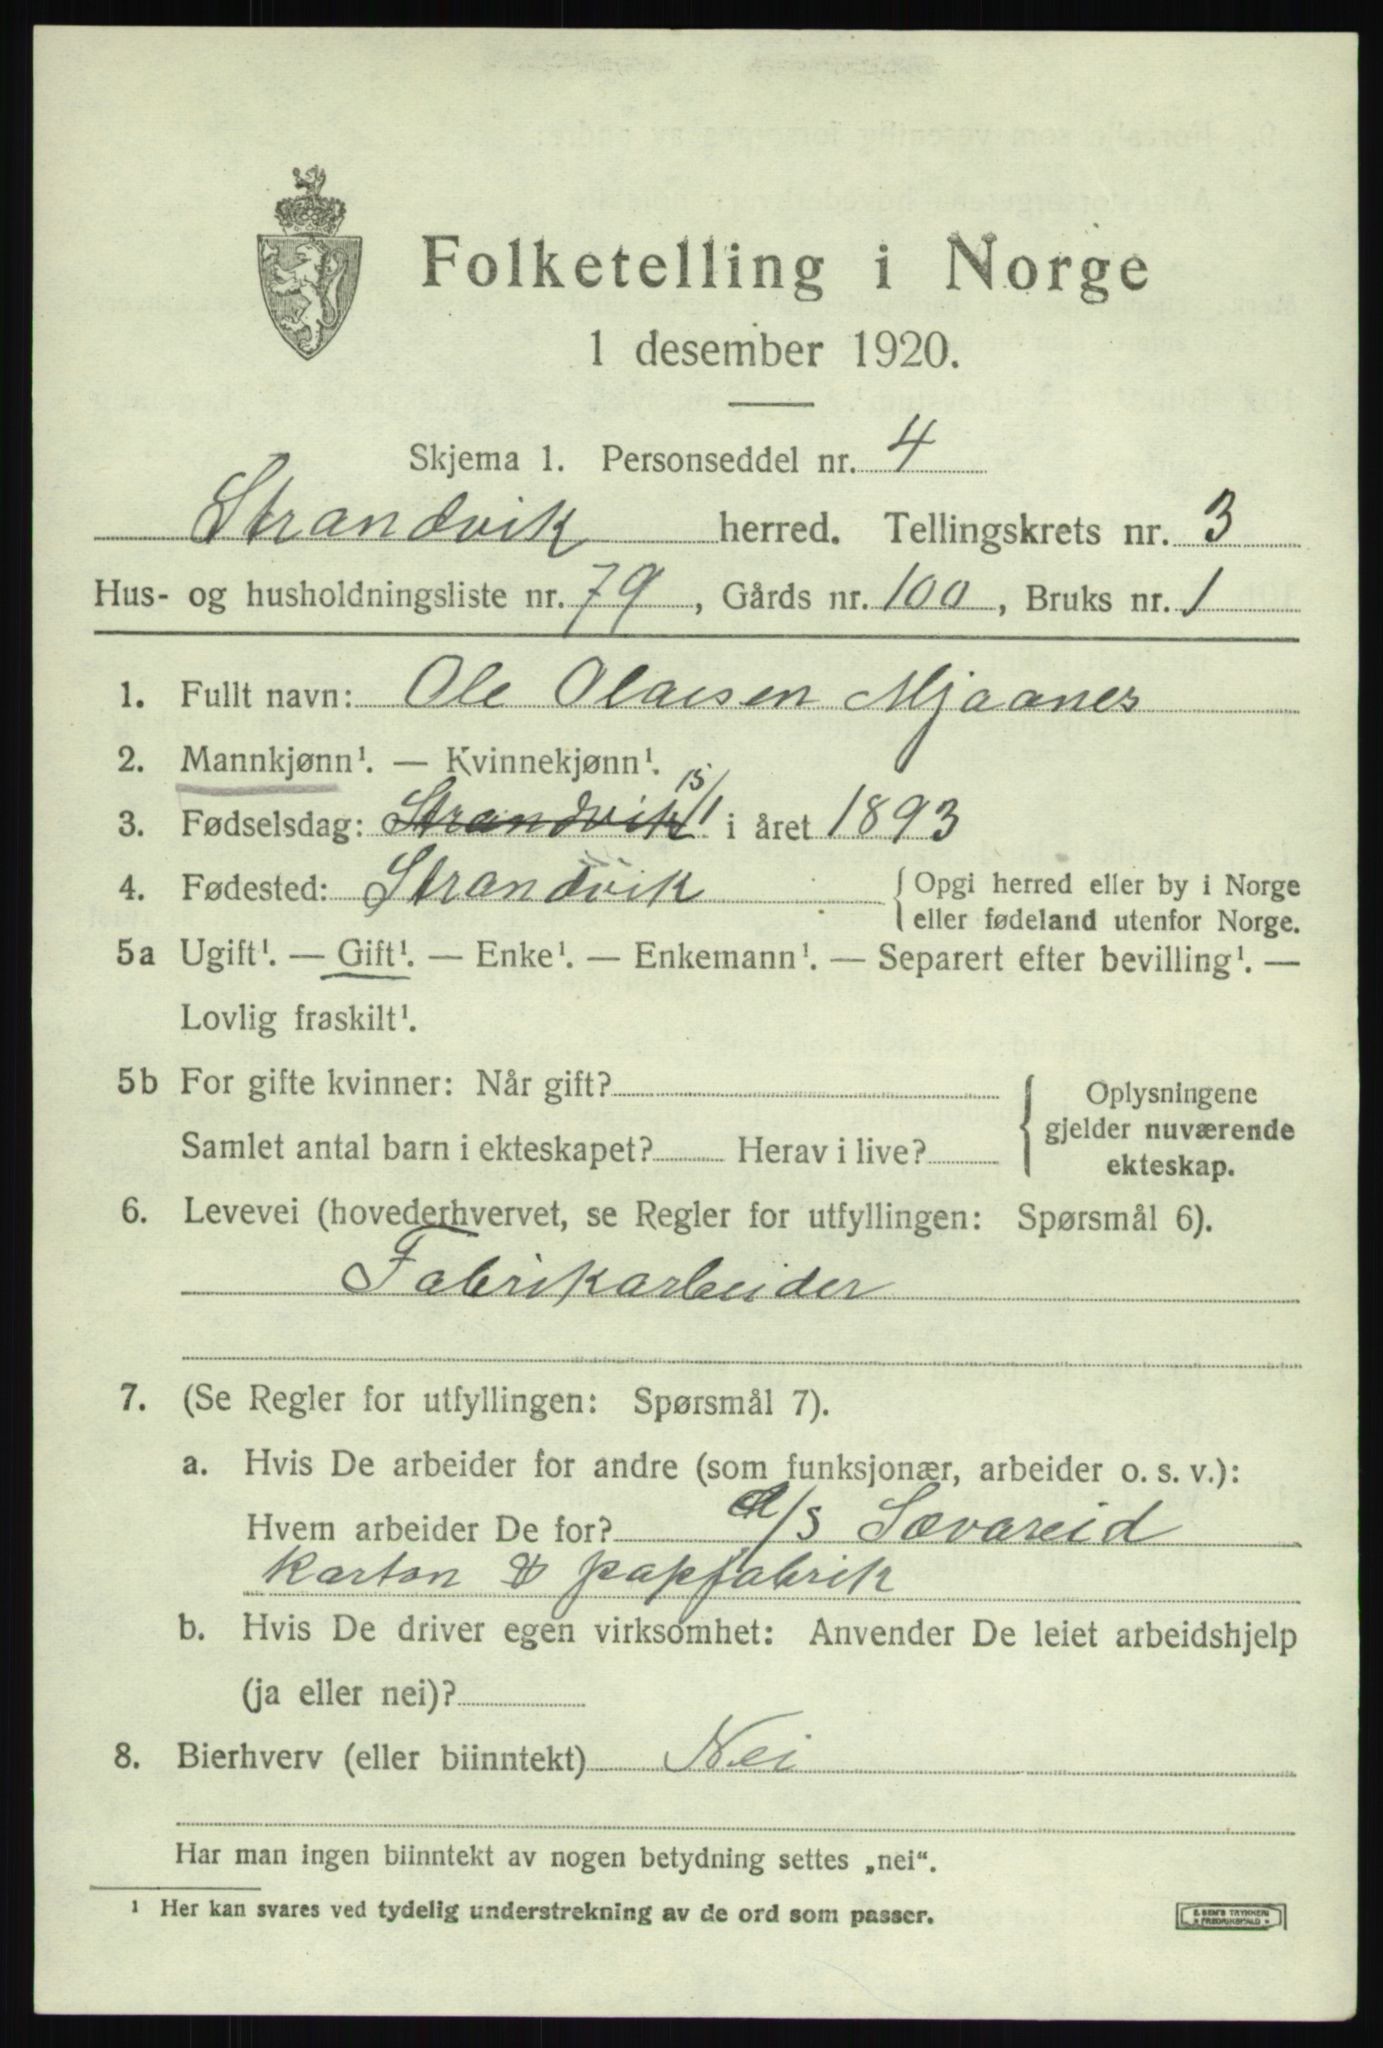 Folketelling i Norge
1 desember 1920.
Skjema 1. Personseddel nr. 4
Strandvik herred. Tellingskrets nr. 3
Hus- og husholdningsliste nr. 79, Gårds nr. 100, Bruks nr. 1
1. Fullt navn: Ole Olaisen Mjaanes
2. Mannkjønn¹. — Kvinnekjønn¹.
3. Fødselsdag: Strandvik 15/1 i året 1893
4. Fødested: Strandvik {Opgi herred eller by i Norge
eller fødeland utenfor Norge.
5a Ugift¹. — Gift¹. — Enke¹. — Enkemann¹. — Separert efter bevilling¹. —
Lovlig fraskilt¹.
5b For gifte kvinner: Når gift? { Oplysningene
gjelder nuværende
Samlet antal barn i ekteskapet? Herav i live? ekteskap.
6. Levevei (hovederhvervet, se Regler for utfyllingen: Spørsmål 6).
Fabrikarbeider
7. (Se Regler for utfyllingen: Spørsmål 7).
a. Hvis De arbeider for andre (som funksjonær, arbeider o. s. v.):
Hvem arbeider De for? A/S Sævareid
karton & papfabrik
b. Hvis De driver egen virksomhet: Anvender De leiet arbeidshjelp
(ja eller nei)?
8. Bierhverv (eller biinntekt) Nei
Har man ingen biinntekt av nogen betydning settes „nei“.
¹ Her kan svares ved tydelig understrekning av de ord som passer.